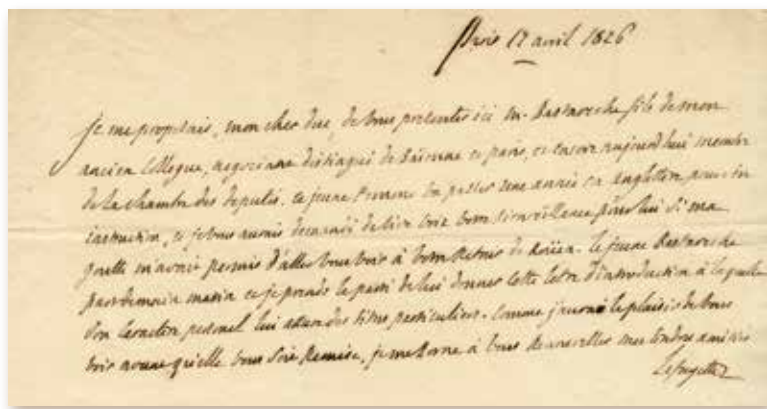 Paris 17 avril 1826
je me proposais, mon cher duc, de vous presenter ici M. Bastarreche fils de mon
ancien collegue, negociant distingué de Baionne et paris, et encore aujourd'hui membre
de la chambre des deputés. ce jeune homme va passer une année en angleterre pour son
instruction, et je vous aurais demandé de vive voix votre bienveillance pour lui si ma
goutte m'avait permis d'aller vous voir à votre retour de Roüen. le jeune Bastarreche
part demain matin et je prends le parti de lui donner cette lettre d'introduction à laquelle
son caractere personel lui des titres particuliers. comme j'aurai le plaisir de vous
voir avant qu'elle vous soit remise, je me borne à vous renouveller mes tendres amitiés
Lafayette